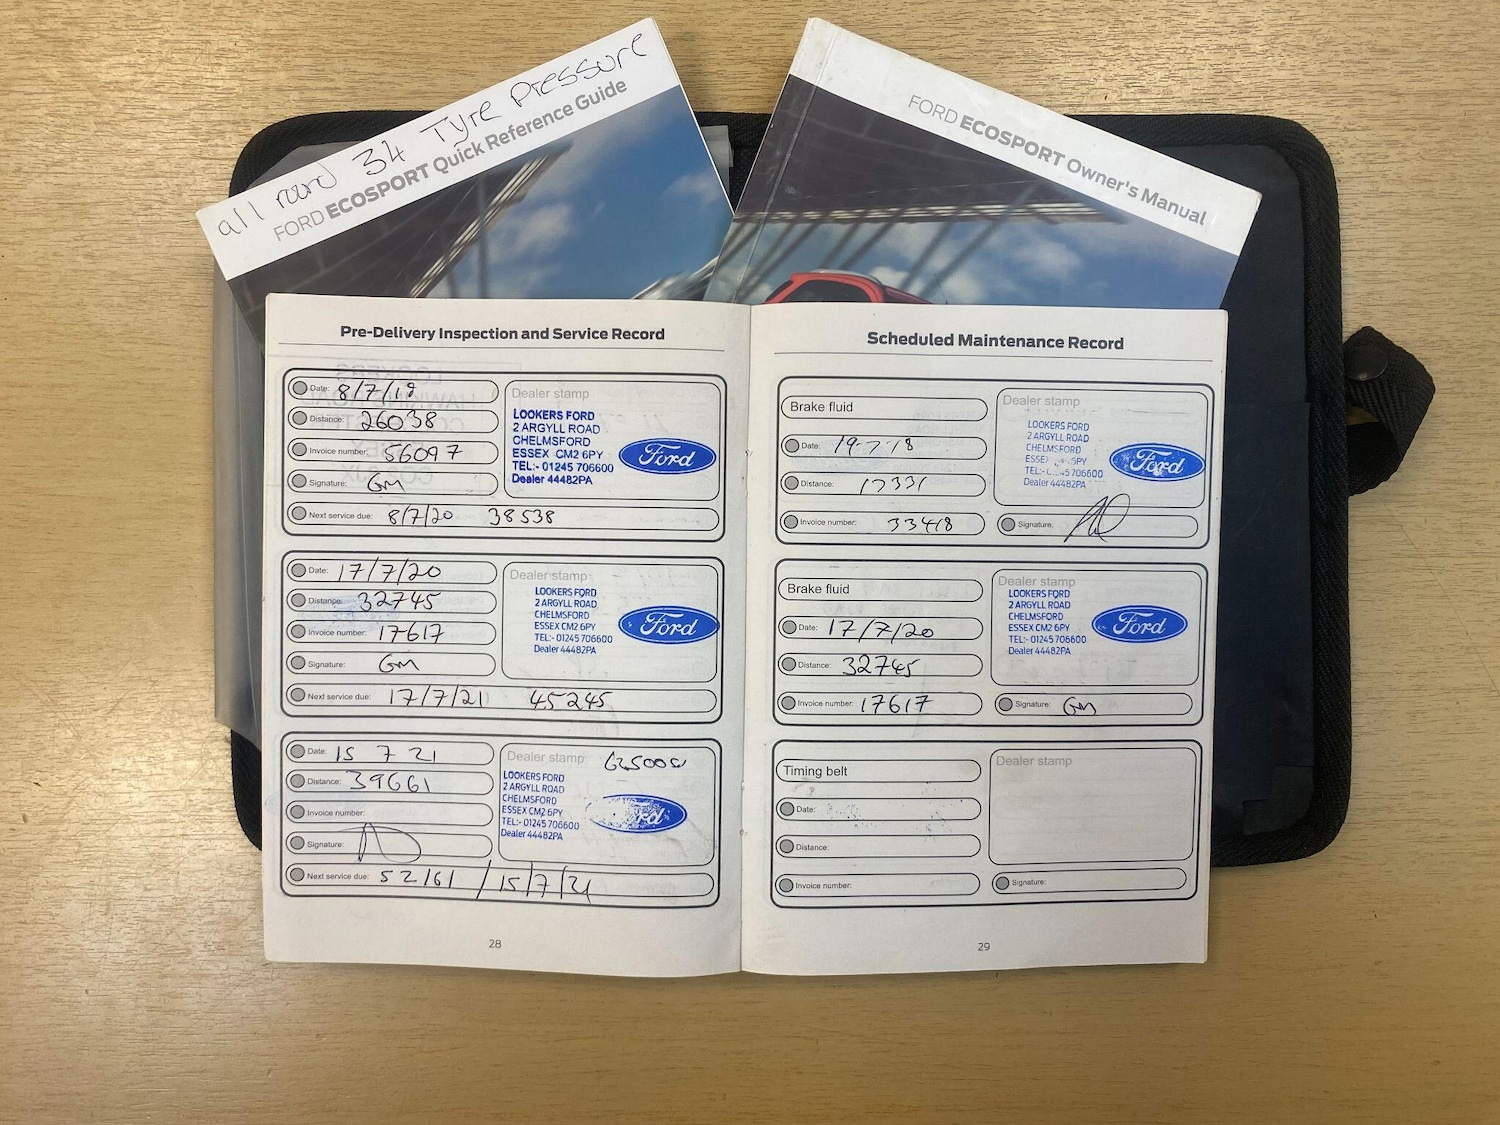 all round 34 Tyre Pressure
FORD ECOSPORT Quick Reference Guide
FORD ECOSPORT Owner's Manual
Pre-Delivery Inspection and Service Record
Date: 8/7/19
Distance: 26038
Invoice number: 56097
Signature: GM
Next service due: 8/7/20 38538
Dealer stamp
LOOKERS FORD
2 ARGYLL ROAD
CHELMSFORD
ESSEX CM2 6PY
TEL:- 01245 706600
Dealer 44482PA
Ford
Date: 17/7/20
Distance: 32745
Invoice number: 17617
Signature: GM
Next service due: 17/7/21 45245
Dealer stamp
LOOKERS FORD
2 ARGYLL ROAD
CHELMSFORD
ESSEX CM2 6PY
TEL:- 01245 706600
Dealer 44482PA
Ford
Date: 15 7 21
Distance: 39661
Invoice number:
Signature:
Next service due: 52161 / 15/7/21
Dealer stamp
LOOKERS FORD
2 ARGYLL ROAD
CHELMSFORD
ESSEX CM2 6PY
TEL:- 01245 706600
Dealer 44482PA
28
Scheduled Maintenance Record
Brake fluid
Date: 19-7-18
Distance: 17331
Invoice number: 33418
Dealer stamp
LOOKERS FORD
2 ARGYLL ROAD
CHELMSFORD
TEL:- 01245 706600
Dealer 44482PA
Ford
Signature:
Brake fluid
Date: 17/7/20
Distance: 32745
Invoice number: 17617
Dealer stamp
LOOKERS FORD
2 ARGYLL ROAD
CHELMSFORD
ESSEX CM2 6PY
TEL:- 01245 706600
Dealer 44482PA
Ford
Signature: GM
Timing belt
Date:
Distance:
Invoice number:
Dealer stamp
Signature:
29